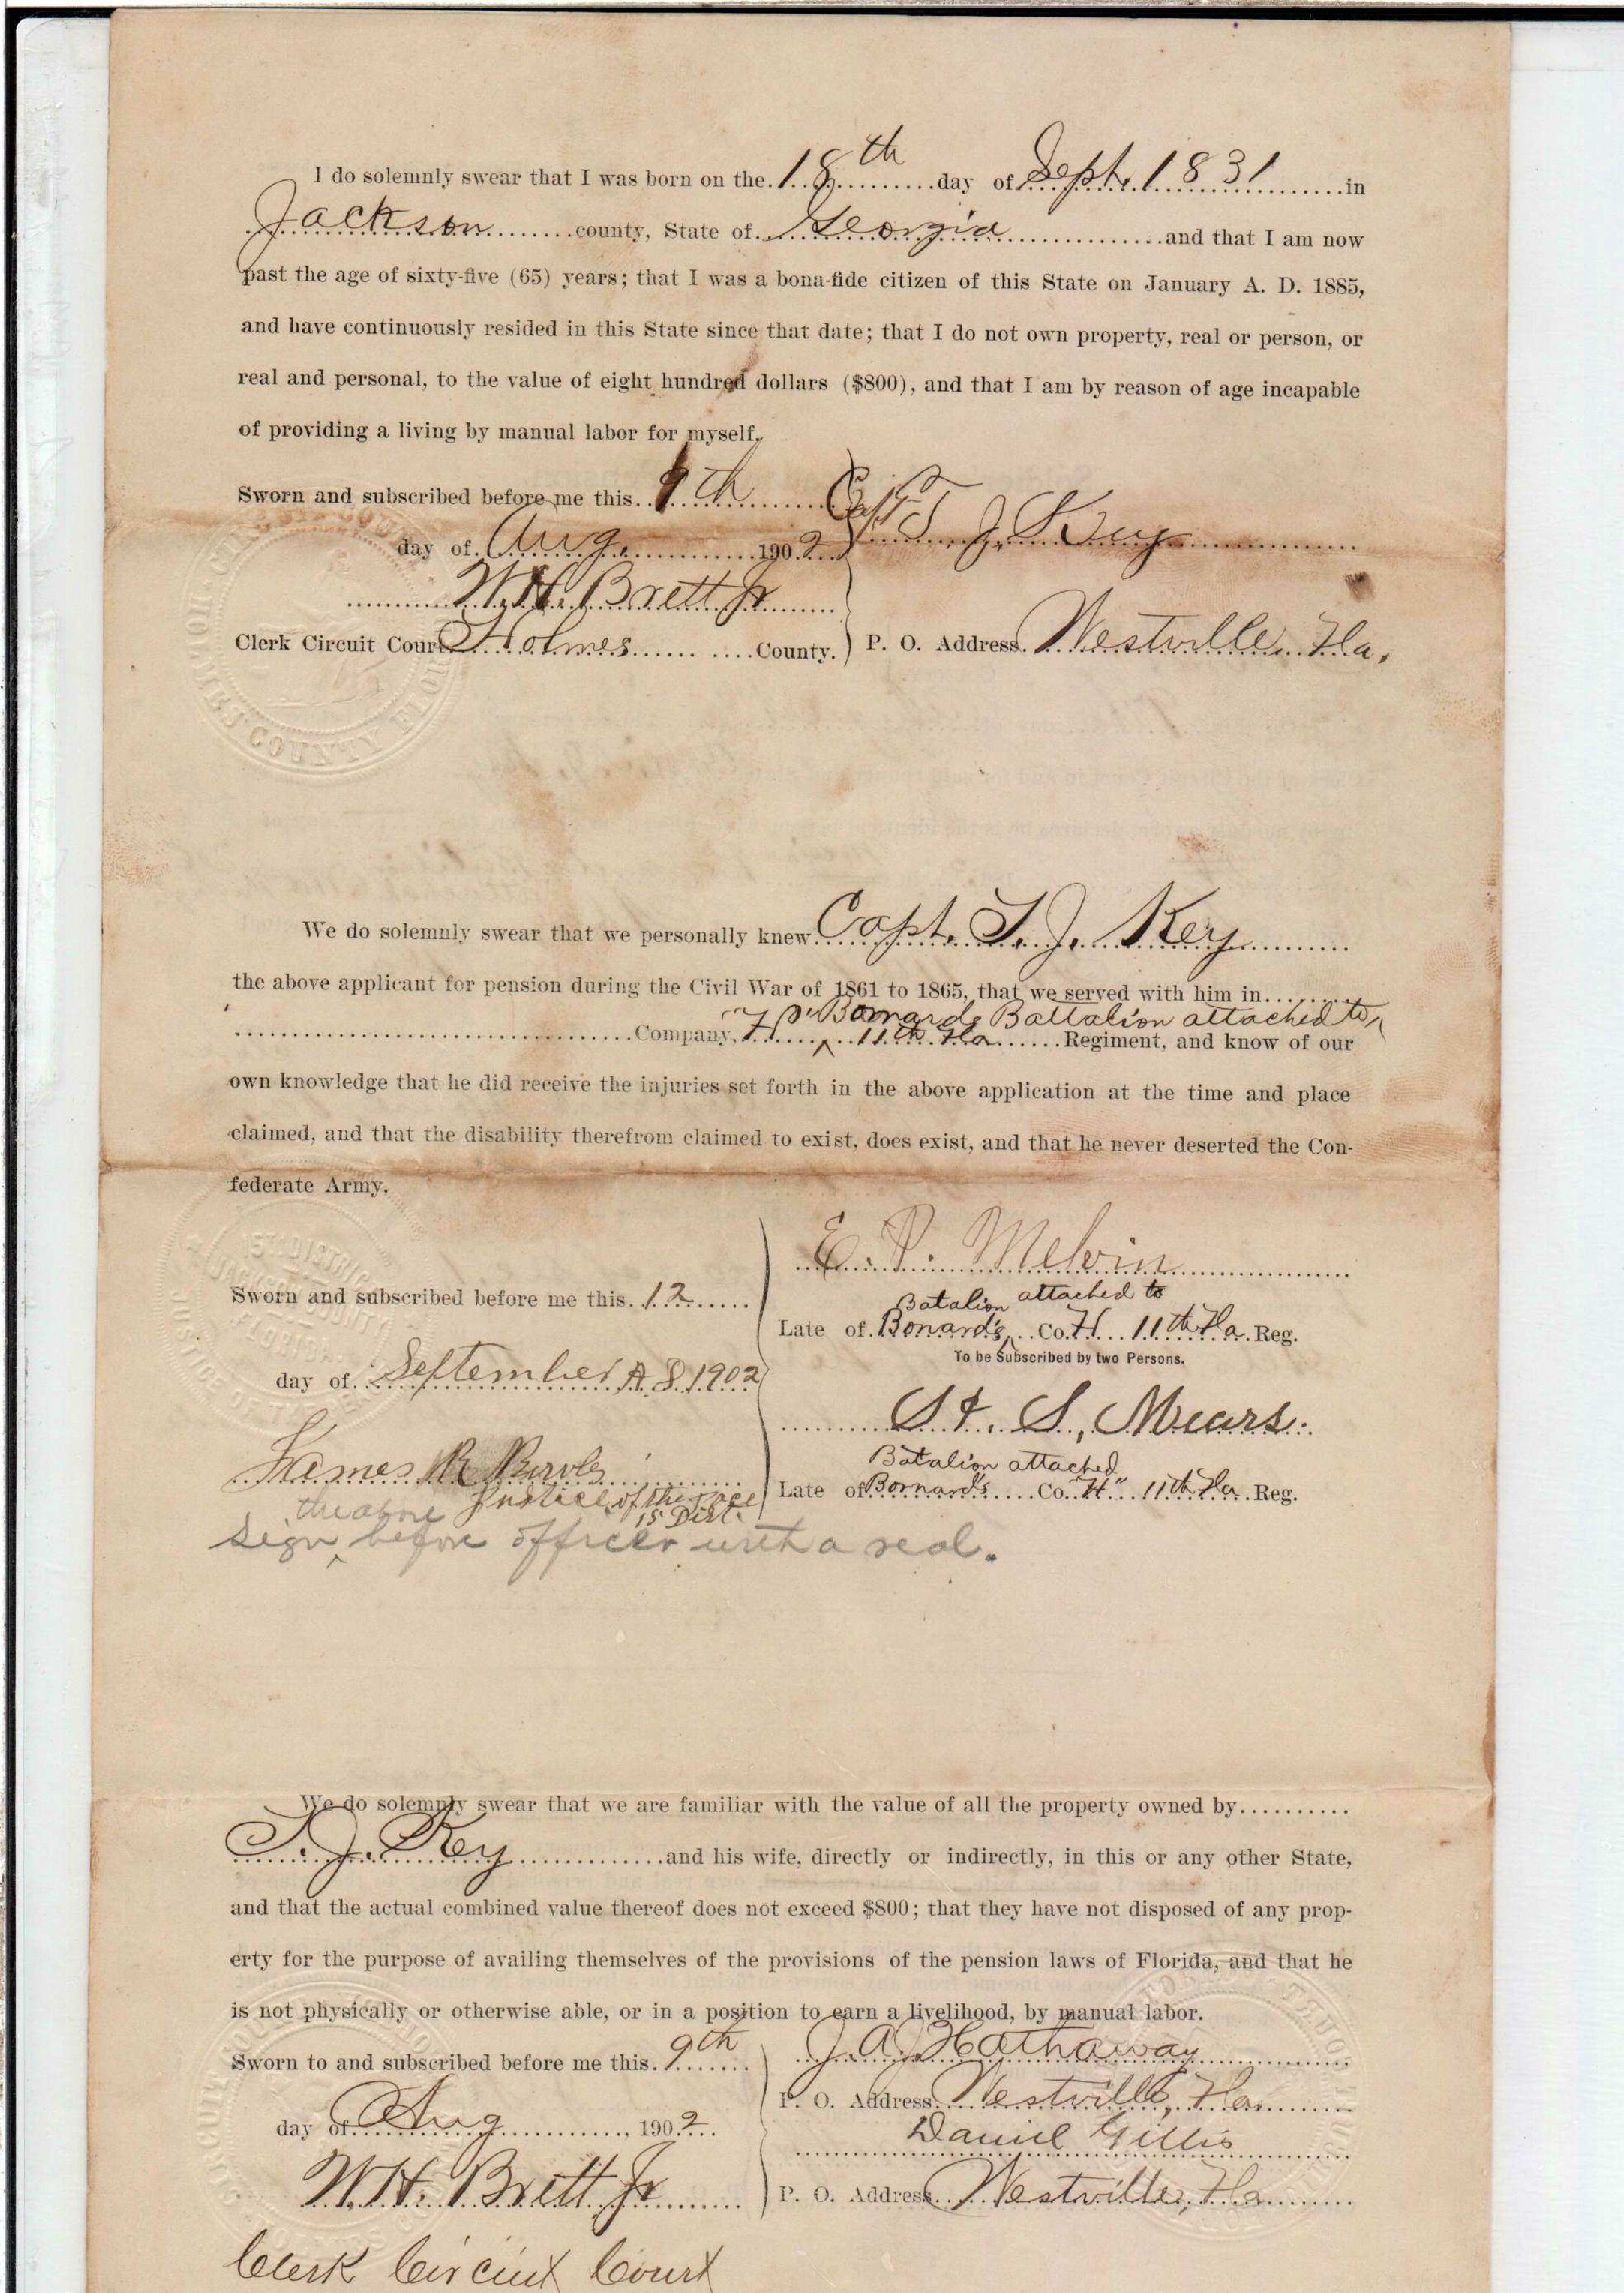 I do solemnly swear that I was born on the 18th day of Sept. 1831 in
Jackson county, State of Georgia and that I am now
past the age of sixty-five (65) years; that I was a bona-fide citizen of this State on January A. D. 1885,
and have continuously resided in this State since that date; that I do not own property, real or person, or
real and personal, to the value of eight hundred dollars ($800), and that I am by reason of age incapable
of providing a living by manual labor for myself.
Sworn and subscribed before me this 9th
day of Aug. 1902
Capt T. J. Key
W. H. Brett Jr
Clerk Circuit Court Holmes County.
P. O. Address. Westville, Fla.
HOLMES COUNTY FLORIDA
We do solemnly swear that we personally knew Capt. T. J. Key
the above applicant for pension during the Civil War of 1861 to 1865, that we served with him in
Bonards Battalion attached to
Company, H 11th Fla Regiment, and know of our
own knowledge that he did receive the injuries set forth in the above application at the time and place
claimed, and that the disability therefrom claimed to exist, does exist, and that he never deserted the Con-
federate Army.
E. P. Melvin
Sworn and subscribed before me this 12
Batalion attached to
Late of Bonard's Co. H 11th Fla. Reg.
To be Subscribed by two Persons.
day of September A D 1902
S. Mears.
James R
Batalion attached
Late of Bonard's Co. "H" 11th Fla. Reg.
Justice of the peace
15 Dist.
1ST DISTRICT JACKSON COUNTY FLORIDA
JUSTICE OF THE PEACE
the above
Sign before officer with a seal.
We do solemnly swear that we are familiar with the value of all the property owned by
T. J. Key and his wife, directly or indirectly, in this or any other State,
and that the actual combined value thereof does not exceed $800; that they have not disposed of any prop-
erty for the purpose of availing themselves of the provisions of the pension laws of Florida, and that he
is not physically or otherwise able, or in a position to earn a livelihood, by manual labor.
Sworn to and subscribed before me this 9th
J. A. J. Hathaway
P. O. Address. Westville, Fla.
day of Aug, 1902
Daniel Gillis
W. H. Brett Jr
P. O. Address Westville, Fla
Clerk Circuit Court